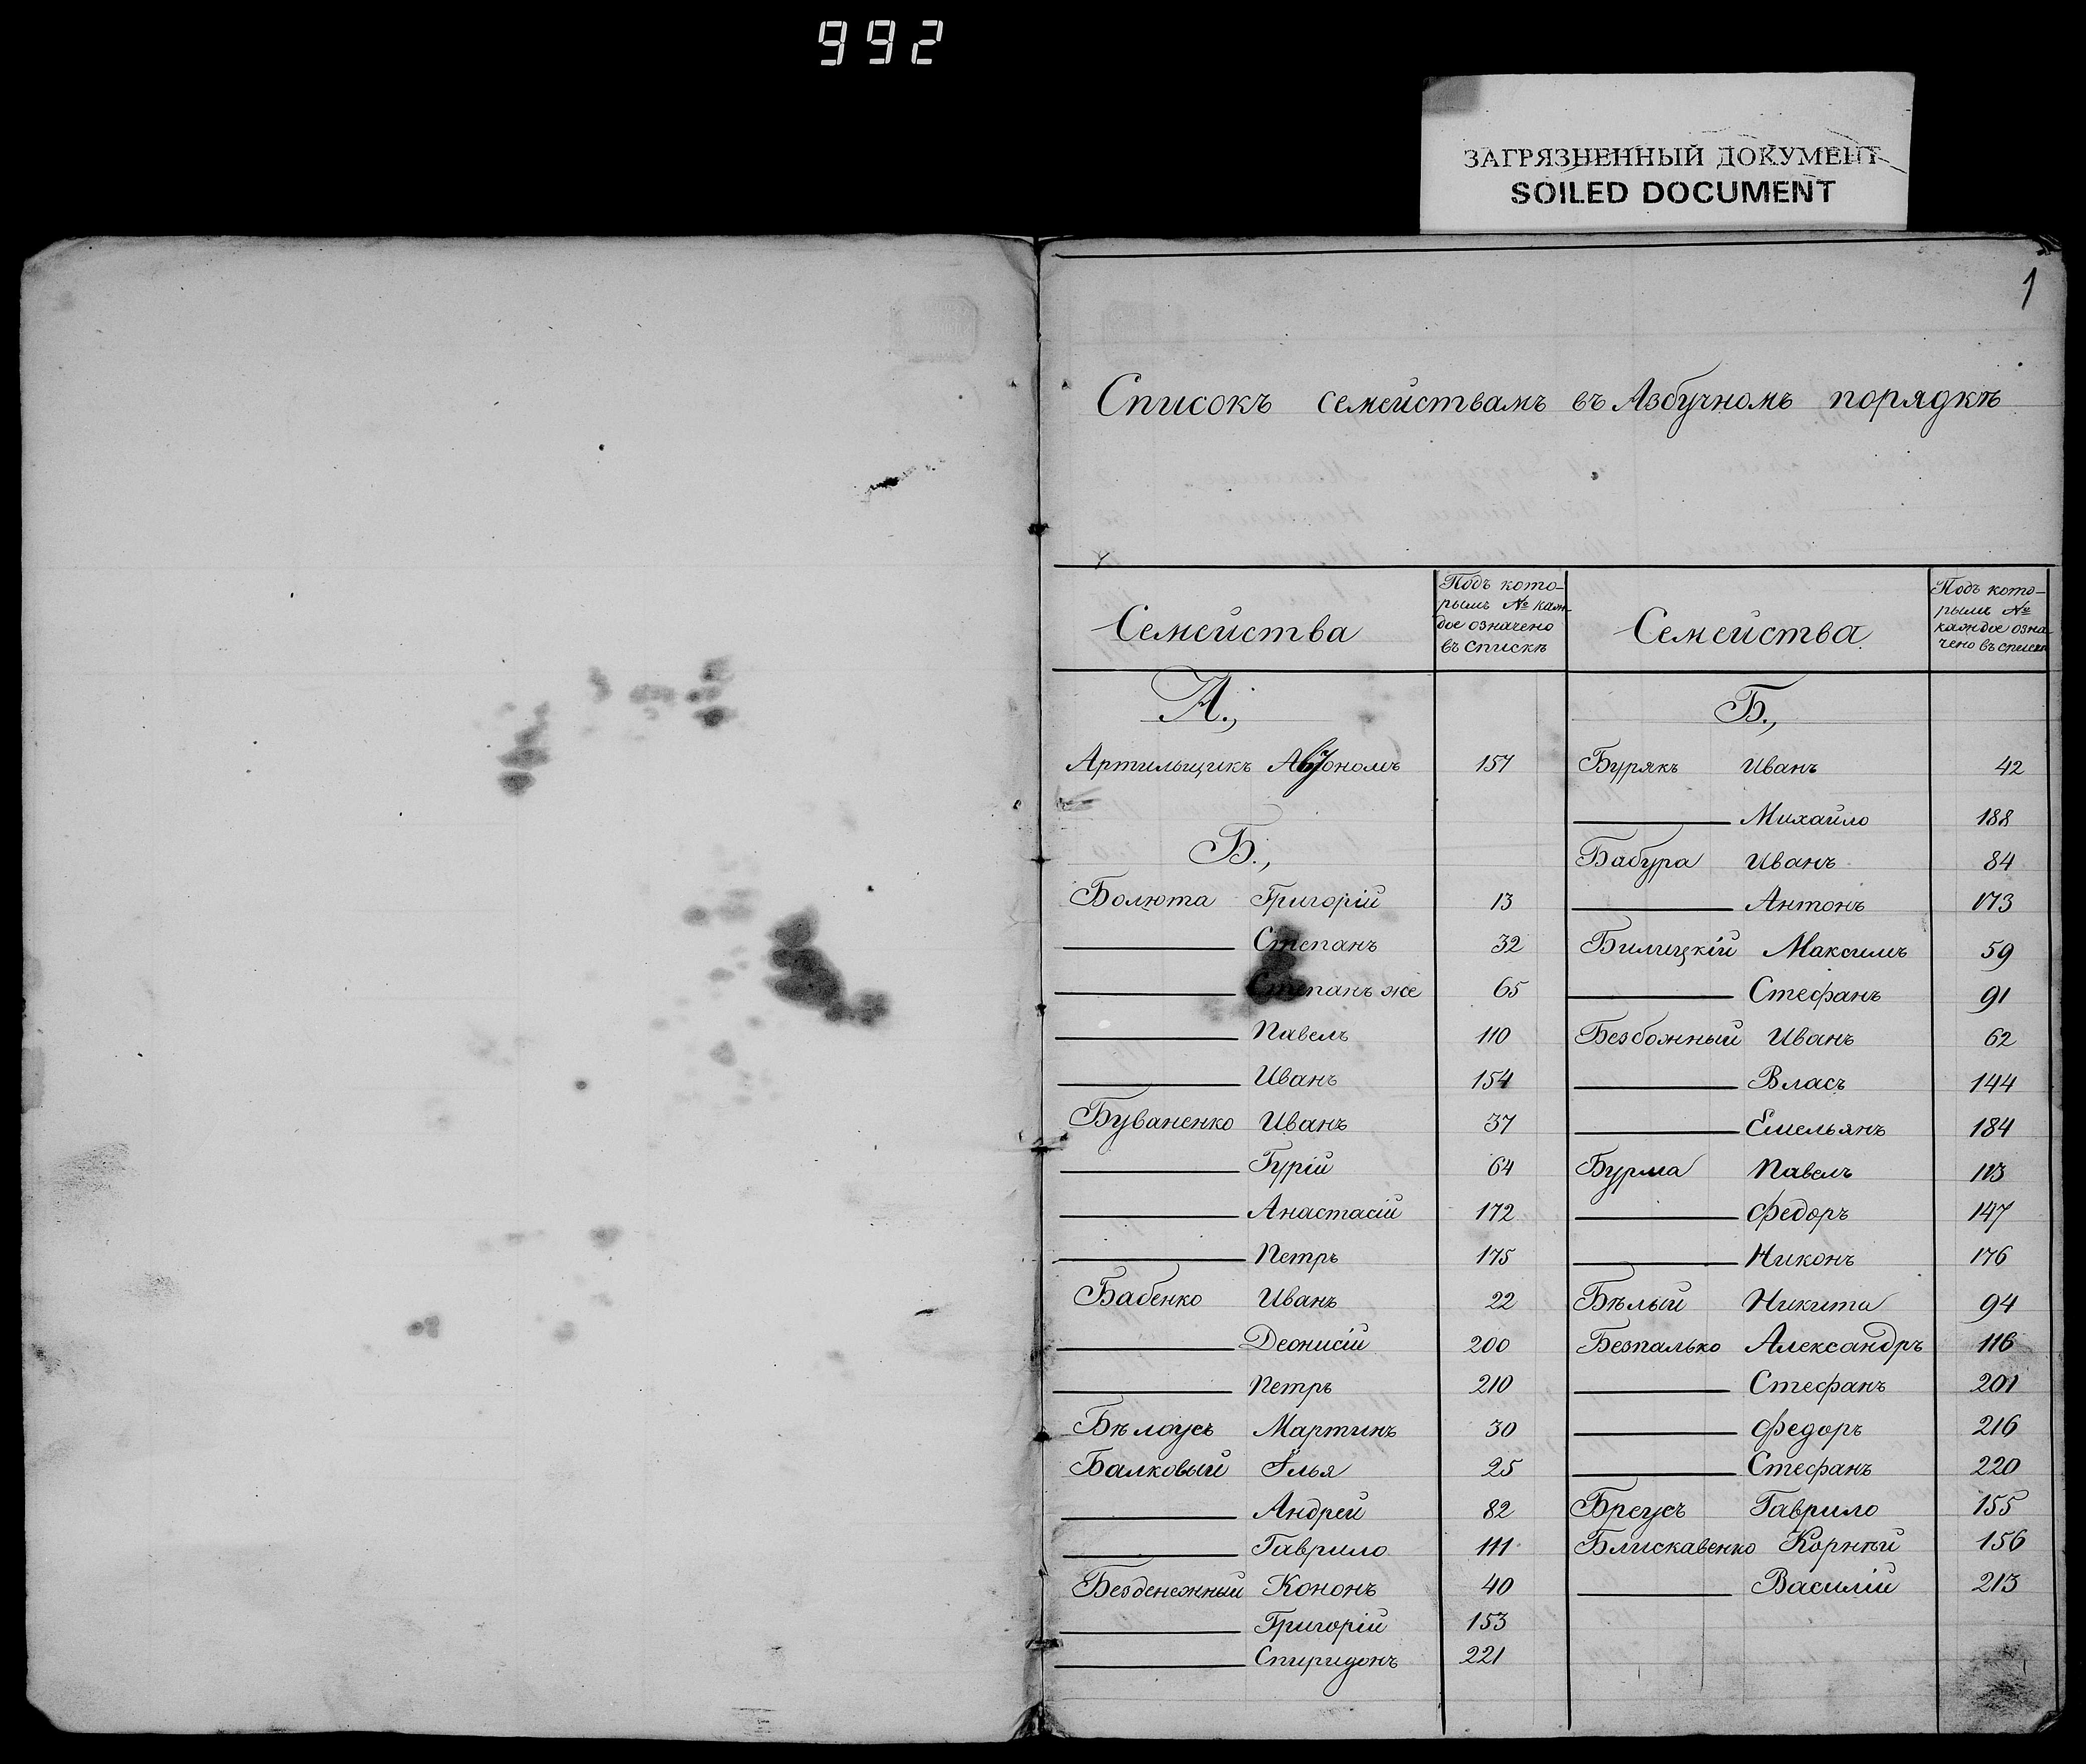 992
ЗАГРЯЗНЕННЫЙ ДОКУМЕНТ
SOILED DOCUMENT
1
Списокъ семействамъ въ Азбучномъ порядкѣ
Семейства
Подъ кото-
рымъ № каж-
дое означено
въ спискѣ
Семейства
Подъ кото-
рымъ №
каждое озна-
чено въ списке
А.,
Артильщикъ 157
Б.,
Болюта Григорій 13
Степанъ 32
Степанъ же 65
Павелъ 110
Иванъ 154
Буваненко Иванъ 37
Гурій 64
Анастасій 172
Петръ 175
Бабенко Иванъ 22
Деонисій 200
Петръ 210
Бѣлоусъ Мартинъ 30
Балковый Илья 25
Андрей 82
Гаврило 111
Безденежный Кононъ 40
Григорій 153
Спиридонъ 221
Б.,
Бурякъ Иванъ 42
Михайло 188
Бабура Иванъ 84
Антонъ 173
Билицкій Максимъ 59
Стефанъ 91
Безбожный Иванъ 62
Власъ 144
Емельянъ 184
Бурма Павелъ 113
Федоръ 147
Никонъ 176
Бѣлый Никита 94
Безпалько Александръ 116
Стефанъ 201
Федоръ 216
Стефанъ 220
Бреусъ Гаврило 155
Блискавенко Корнѣй 156
Василій 213